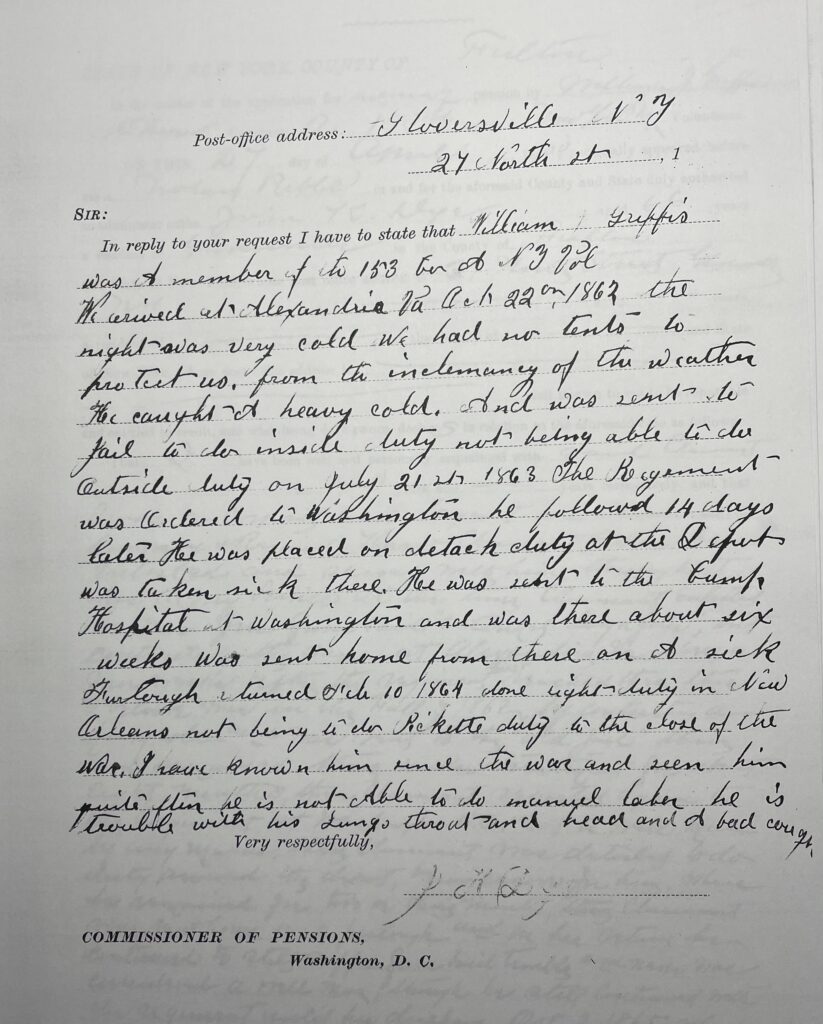 Post-office address: Gloversville N Y
27 North st , 1
SIR:
In reply to your request I have to state that William Griffis
was A member of th 153 A N Y Vol
We arived at Alexandria Va Oct 22on, 1862 the
night was very cold we had no tents to
protect us. from th inclemancy of the weather
He caught A heavy cold. And was sent to
Jail to do inside duty not being able to do
Outside duty on July 21 st 1863 The Regement
was Ordered to Washington he followd 14 days
later He was placed on detack duty at the Depot
was taken sick there. He was sent to the Camp
Hospital at Washington and was there about six
weeks Was sent home from there on A sick
Furlough turned Feb 10 1864 done light duty in New
Orleans not being to do Rickette duty to the close of the
War. I have known him since the war and seen him
quite ften he is not Able to do manuel laber he is
trouble with his Lungs throat and head and A bad cough.
Very respectfully,
COMMISSIONER OF PENSIONS,
Washington, D. C.